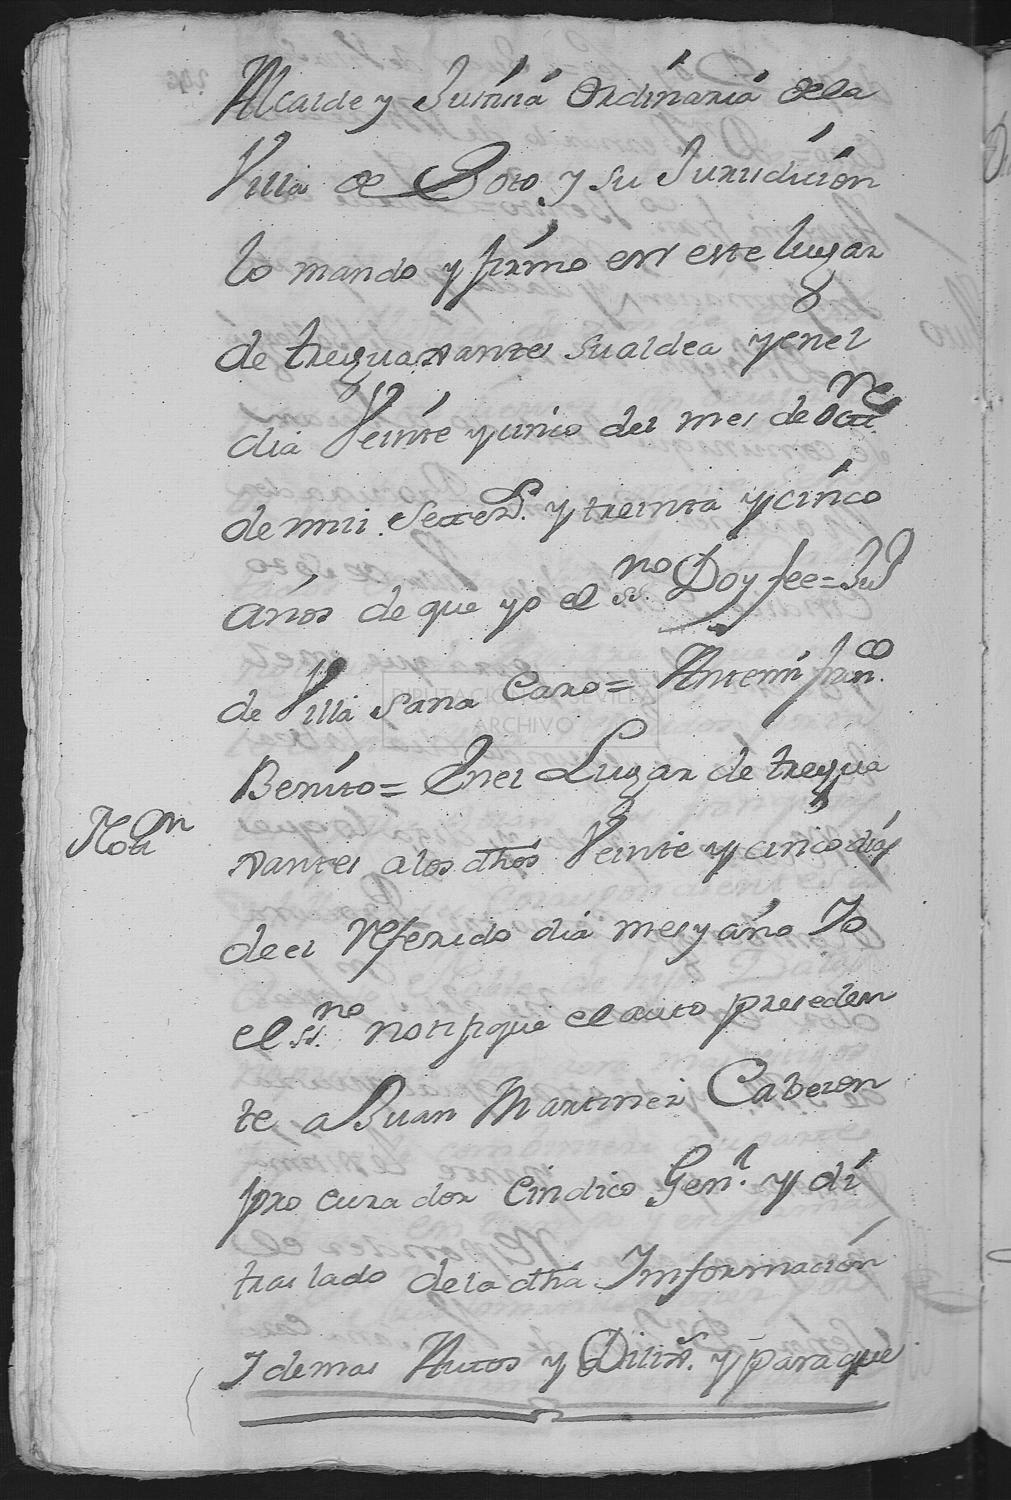 Alcalde y Justicia Ordinaria de la
Villa de Soto y su Jurisdicion
lo mando y firmo en este lugar
de treguaxantes su aldea y en el
dia Veinte y cinco del mes de Octre
de mill Settezs. y treinta y cinco
años de que yo el ssno Doy fee =
de Villa Sana Caro = Antemi Franco
Benito = Enel Lugar de tregua
Notin
xantes a los dhos Veinte y cinco dias
de el Referido dia mes y año Yo
el ssno notifique el auto preceden
te a Juan Martinez Cabezon
procurador Cindico Genl. y di
traslado de la dha Informacion
Y demas Autos y Diliss. y para que
DIPUTACION DE SEVILLA
ARCHIVO